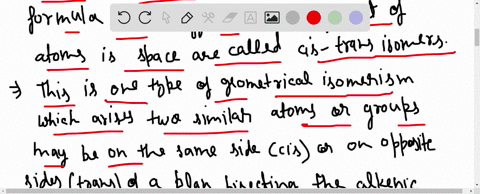 formula of
atoms is space are called cis-trans isomers.
→ This is one type of geometrical isomerism
which arises two similar atoms or groups
may be on the same side (cis) or on opposite
sides (trans) of a plan bisecting the alkenic